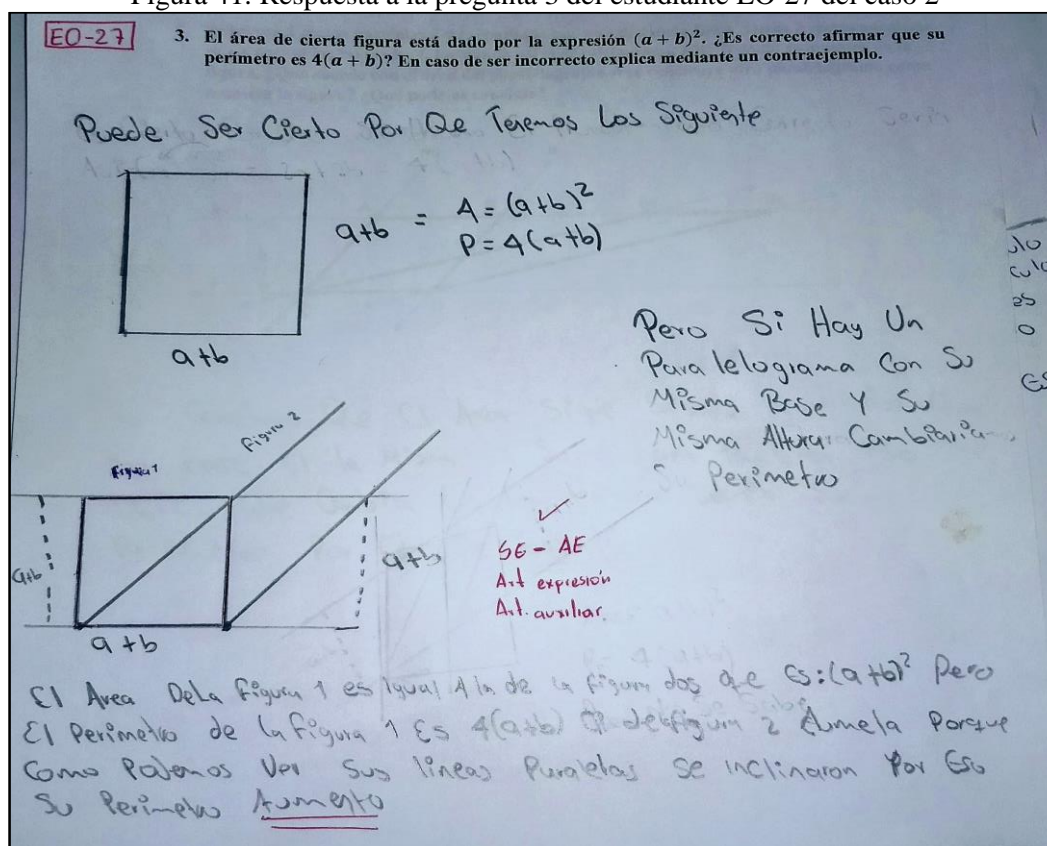 Figura 41. Respuesta a la pregunta 3 del estudiante EO-27 del caso 2
EO-27
3. El área de cierta figura está dado por la expresión (a + b)². ¿Es correcto afirmar que su
perímetro es 4(a + b)? En caso de ser incorrecto explica mediante un contraejemplo.
Puede Ser Cierto Por Qe Tenemos Los Siguiente
a+b = A = (a+b)²
P = 4(a+b)
a+b
Pero Si Hay Un
Paralelograma Con Su
Misma Base Y Su
Misma Altura Cambiaria
Su Perimetro
Figura 1
Figura 2
a+b
a+b
a+b
SE - AE
Art expresión
Art. auxiliar.
El Area De La figura 1 es igual A la de la figura dos qe Es: (a+b)² Pero
El Perimetro de la figura 1 Es 4(a+b) figura 2 Porque
Como Podemos Ver Sus lineas Paralelas se inclinaron Por Eso
Su Perimetro Aumento